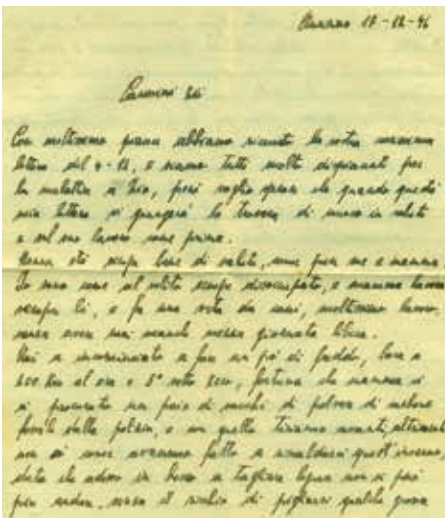 18-12-46
Carissimi zii
Con moltissimo piacere abbiamo ricevuto la vostra carissima
lettera del 4-12, e siamo tutti molto dispiaciuti per
la malattia a zio, però voglio sperare che quando questa
mia lettera vi giungerà lo troverà di nuovo in salute
e al suo lavoro come prima.
sta sempre bene di salute, come pure me e mamma
Io sono come al solito sempre disoccupato, e mamma lavora
sempre lì, e fa una vita da cani, moltissimo lavoro,
senza avere mai neanche mezza giornata libera.
Qui a incominciato a fare un pò di freddo, bora a
100 km al ora e 8° sotto zero, fortuna che mamma si
a procurato un paio di sacchi di polvere di carbone
della, e con quella tiriamo avanti, altrimenti
non si come avremmo fatto a riscaldarci quest'inverno,
dato che adesso in bosco a tagliare legna non si può
più andare, senza il rischio di pigliarsi qualche